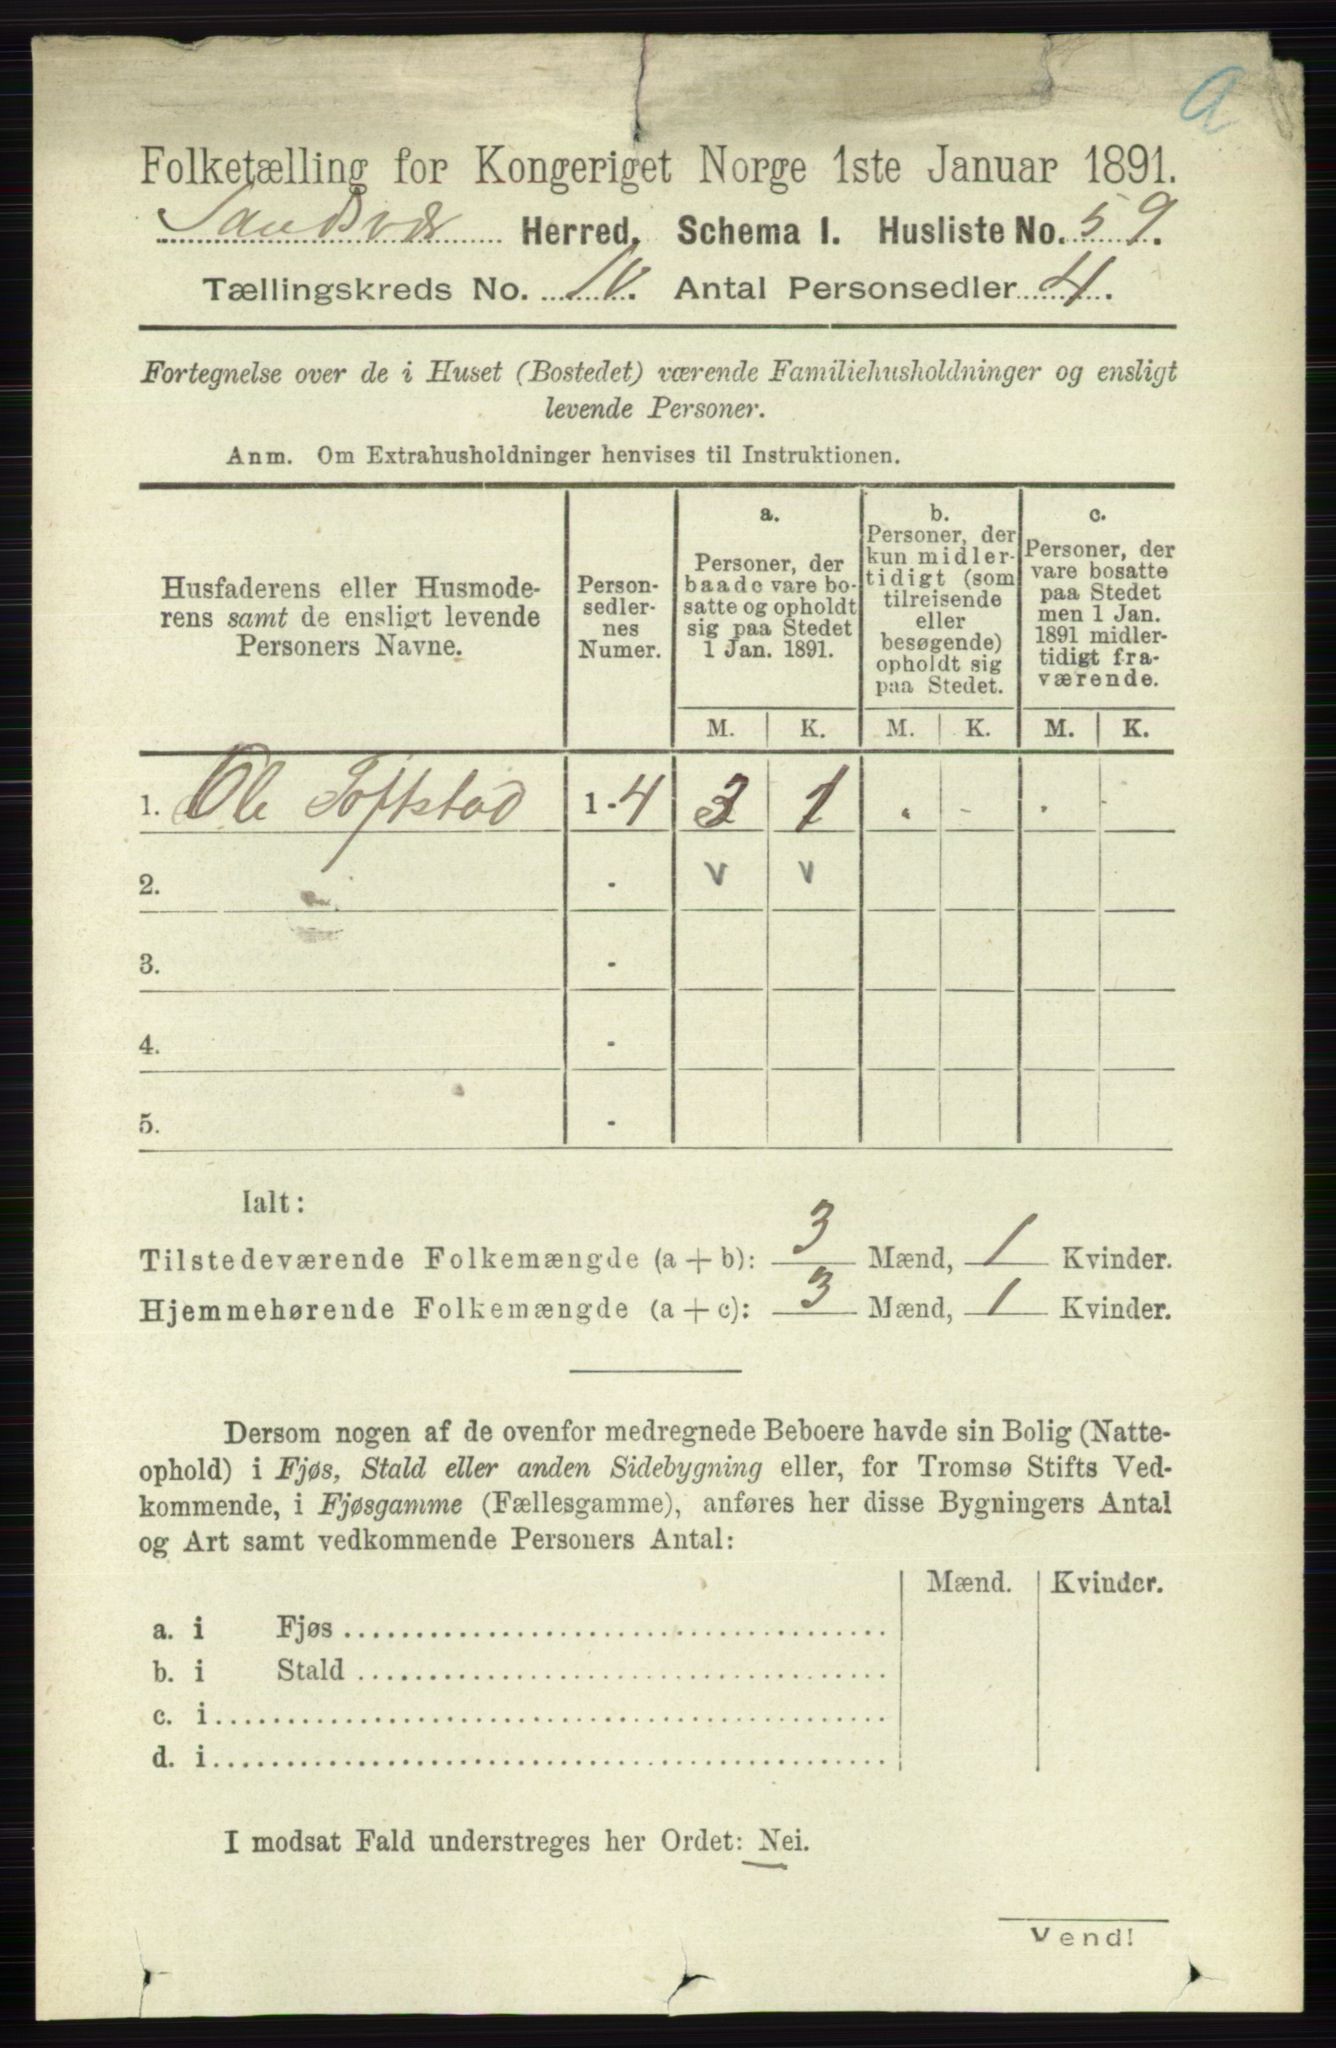 a
Folketælling for Kongeriget Norge 1ste Januar 1891.
Sandsvær Herred. Schema I. Husliste No. 59.
Tællingskreds No. 10. Antal Personsedler 4.
Fortegnelse over de i Huset (Bostedet) værende Familiehusholdninger og ensligt
levende Personer.
Anm. Om Extrahusholdninger henvises til Instruktionen.
Husfaderens eller Husmode-
rens samt de ensligt levende
Personers Navne.
Person-
sedler-
nes
Numer.
a.
Personer, der
baade vare bo-
satte og opholdt
sig paa Stedet
1 Jan. 1891.
b.
Personer, der
kun midler-
tidigt (som
tilreisende
eller
besøgende)
opholdt sig
paa Stedet.
c.
Personer, der
vare bosatte
paa Stedet
men 1 Jan.
1891 midler-
tidigt fra-
værende.
M. K. M. K. M. K.
1. Ole Toftstad 1-4 3 1 . - . -
2. . v v
3. .
4. .
5. .
Ialt:
Tilstedeværende Folkemængde (a + b): 3 Mænd, 1 Kvinder.
Hjemmehørende Folkemængde (a + c): 3 Mænd, 1 Kvinder.
Dersom nogen af de ovenfor medregnede Beboere havde sin Bolig (Natte-
ophold) i Fjøs, Stald eller anden Sidebygning eller, for Tromsø Stifts Ved-
kommende, i Fjøsgamme (Fællesgamme), anføres her disse Bygningers Antal
og Art samt vedkommende Personers Antal:
Mænd. Kvinder.
a. i Fjøs
b. i Stald
c. i
d. i
I modsat Fald understreges her Ordet: Nei.
Vend!